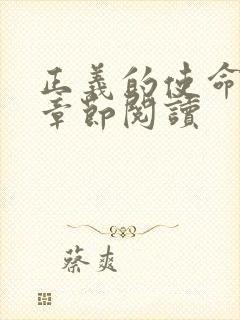 正義的使命
章節閱讀
蔡爽